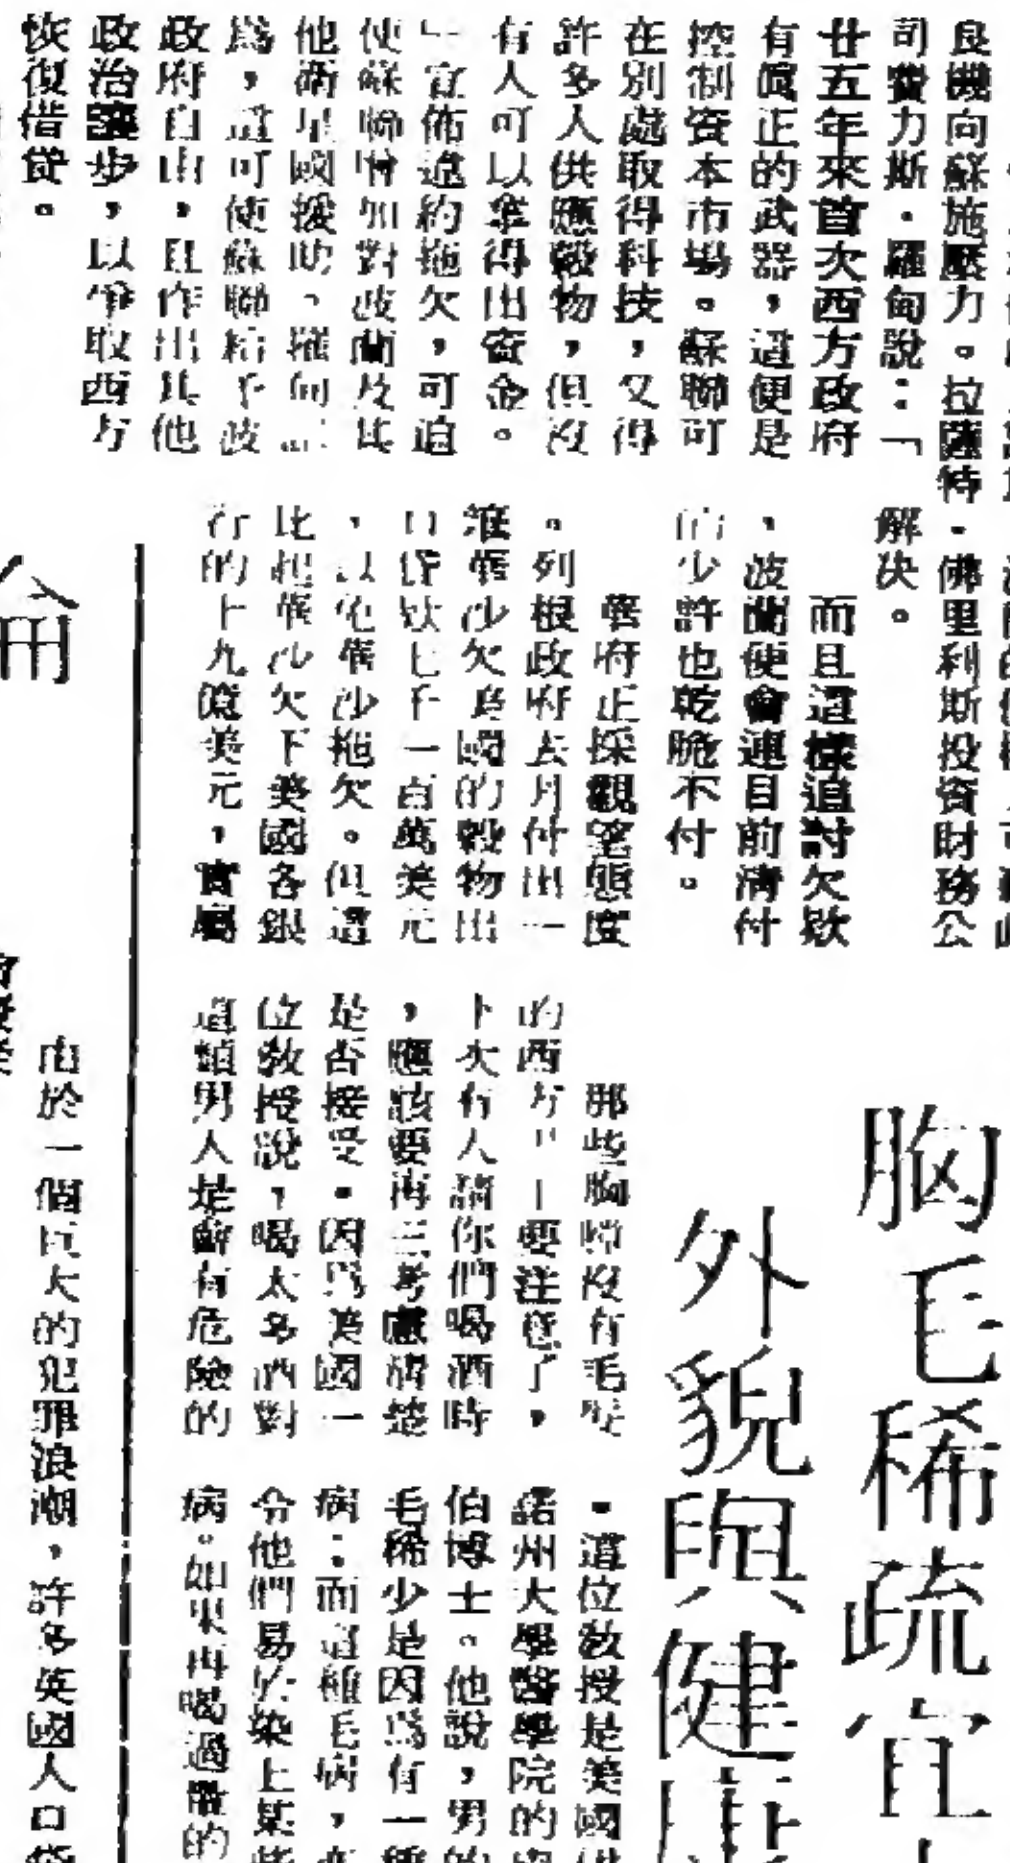 良機向蘇施壓力。拉薩特·佛里利斯投資財務公
司費力斯·羅甸說：「
廿五年來首次西方政府
有眞正的武器，這便是
控制資本市場。蘇聯可
在別處取得科技，又得
許多人供應穀物，但沒
有人可以拿得出資金。
」宣佈違約拖欠，可迫
使蘇聯增加對波蘭及其
他衞星國援助。羅甸認
爲，這可使蘇聯給予波
政府自由，且作出其他
政治讓步，以爭取西方
恢復借貸。
解決。
而且這樣追討欠欵
，波蘭便會連目前清付
的少許也乾脆不付。
華府正採觀望態度
。列根政府去月付出一
准華沙欠美國的穀物出
口貸欵七千一百萬美元
，以免華沙拖欠。但這
比起華沙欠下美國各銀
行的十九億美元，實屬
胸毛稀疏宜
外貌與健康
那些胸膛沒有毛髮
的西方男士要注意了，
下次有人請你們喝酒時
，應該要再三考慮清楚
是否接受。因爲美國一
位敎授說，喝太多酒對
這類男人是會有危險的
。這位敎授是美國
諾州大學醫學院的
伯博士。他說，男的
毛稀少是因爲有一種
病；而這種毛病，
令他們易於染上某些
病。如果再喝過量的
由於一個巨大的犯罪浪潮，許多英國人口袋